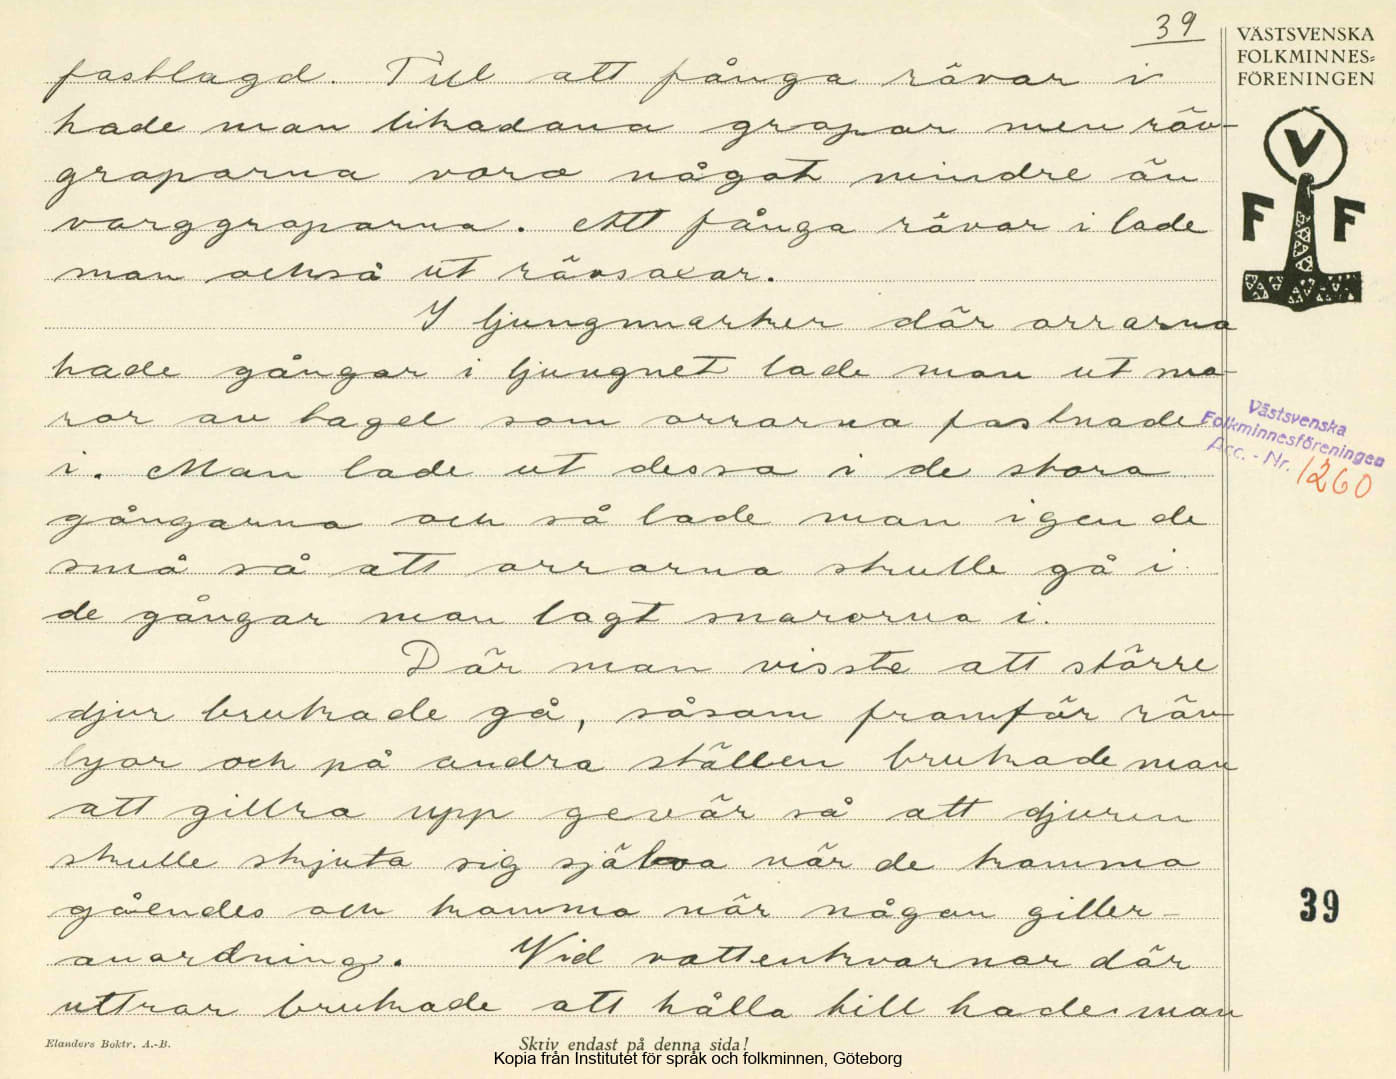 39
VÄSTSVENSKA
FOLKMINNES=
FÖRENINGEN
V
F F
fastlagd. Till att fånga rävar i
hade man likadana gropar men räv-
groparna voro något mindre än
varggroparna. Att fånga rävar i lade
man också ut rävsaxar.
I ljungmarker där orrarna
hade gångar i ljungnet lade man ut sna-
ror av tagel som orrarna fastnade
i. Man lade ut dessa i de stora
gångarna och så lade man igen de
små så att orrarna skulle gå i
de gångar man lagt snarorna i.
Där man visste att större
djur brukade gå, såsom framför räv-
lyor och på andra ställen brukade man
att gillra upp gevär så att djuren
skulle skjuta sig själva när de komma
gåendes och komma när någon giller-
anordning. Vid vattenkvarnar där
uttrar brukade att hålla till hade man
Västsvenska
Folkminnesföreningen
Acc. - Nr. 1260
39
Elanders Boktr. A.-B.
Skriv endast på denna sida!
Kopia från Institutet för språk och folkminnen, Göteborg